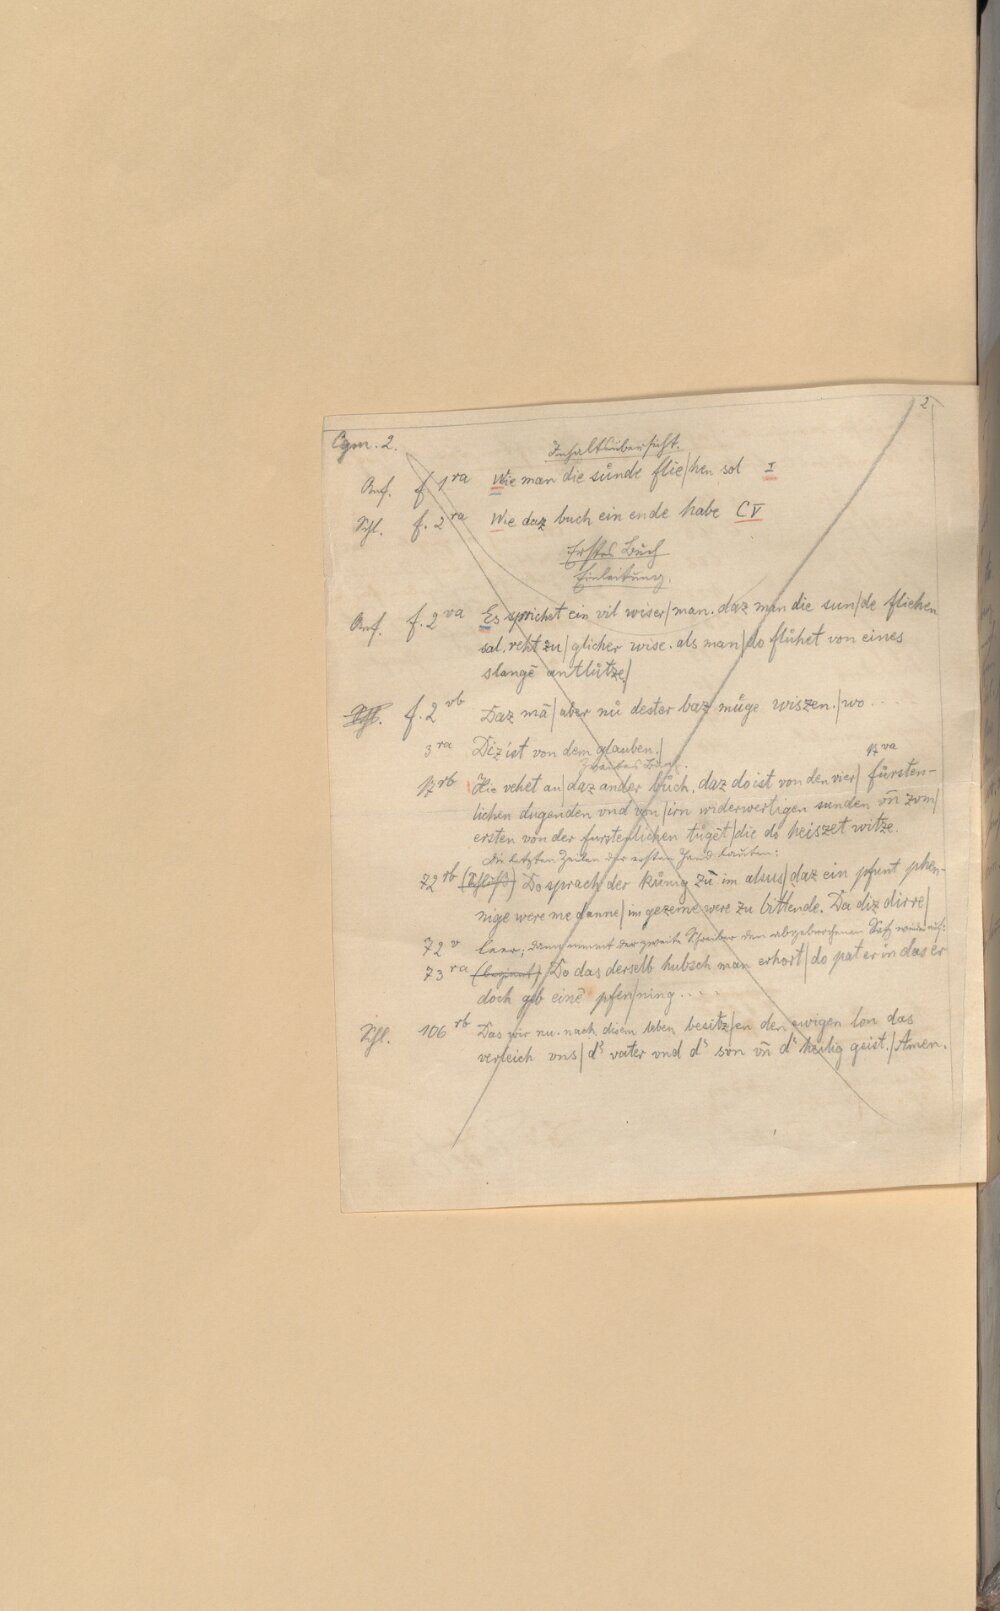 2
Cgm. 2.
Inhaltsübersicht.
Anf. f. 1 ra Wie man die sünde flie|hen sol I
Schl. f. 2 ra Wie daz buch ein ende habe CV
Erstes Buch
Einleitung.
Anf. f. 2 va Es sprichet ein vil wiser|man. daz man die sun|de fliehen
sal. reht zu|glicher wise. als man|do flühet von eines
slangē antlütze|
Schl. f. 2 vb Daz mā|aber nů dester baz müge wiszen.|wo ....
3 ra Diz ist von dem glauben.|
Zweites Buch.
17 va
17 rb Hie vehet an|daz ander bůch. daz do ist von den vier|fürsten-
lichen dugenden vnd von|irn widerwertigen sunden vn̄ zvm|
ersten von der furstenlichen tugēt|die do heiszet witze.
Die letzten Zeilen der ersten Hand lauten:
72 rb (Schluß) Do sprach der künig zū im alsus|daz ein pfunt phen-
nige were me danne|im gezeme were zu bittende. Da diz dirre|
72 v leer; dann nimmt der zweite Schreiber den abgebrochenen Satz wieder auf:
73 ra (beginnt) Do das derselb hubsch man erhort|do pat er in das er
doch geb einē pfen|ning ....
Schl. 106 rb Das wir nu. nach disem leben besitz|en den ewigen lon das
verleich vns|ds vater vnd ds son vn̄ ds heilig geist.|Amen.